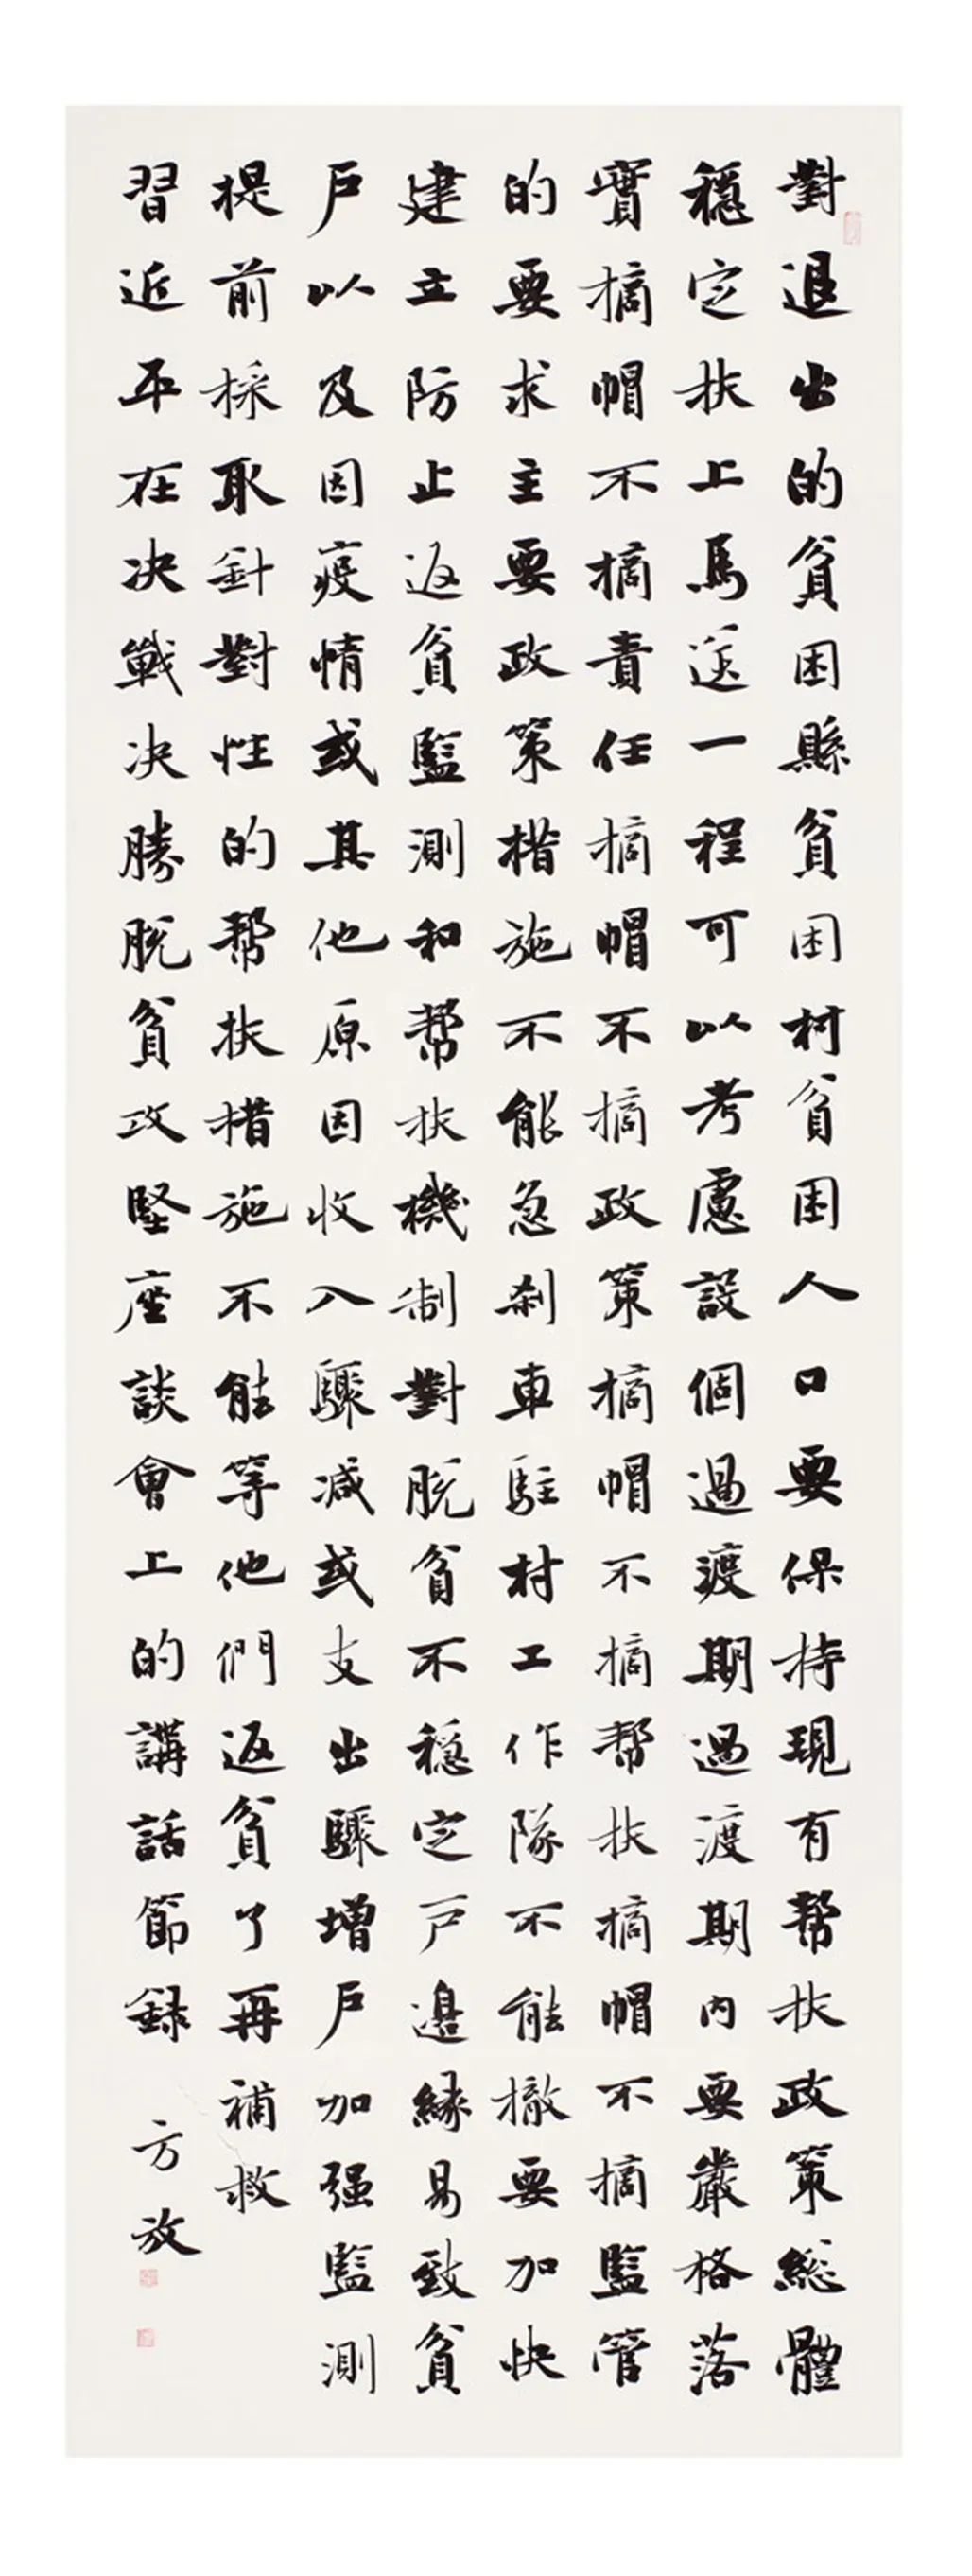 對退出的貧困縣貧困村貧困人口要保持現有帮扶政策總體
穩定扶上馬送一程可以考慮設個過渡期過渡期内要嚴格落
實摘帽不摘責任摘帽不摘政策摘帽不摘帮扶摘帽不摘監管
的要求主要政策措施不能急剎車駐村工作隊不能撤要加快
建立防止返貧監測和帮扶機制對脱貧不穩定户邊緣易致貧
户以及因疫情或其他原因收入驟減或支出驟增户加强監測
提前採取針對性的帮扶措施不能等他們返貧了再補救
習近平在决戰决勝脱貧攻堅座談會上的講話節録
方放